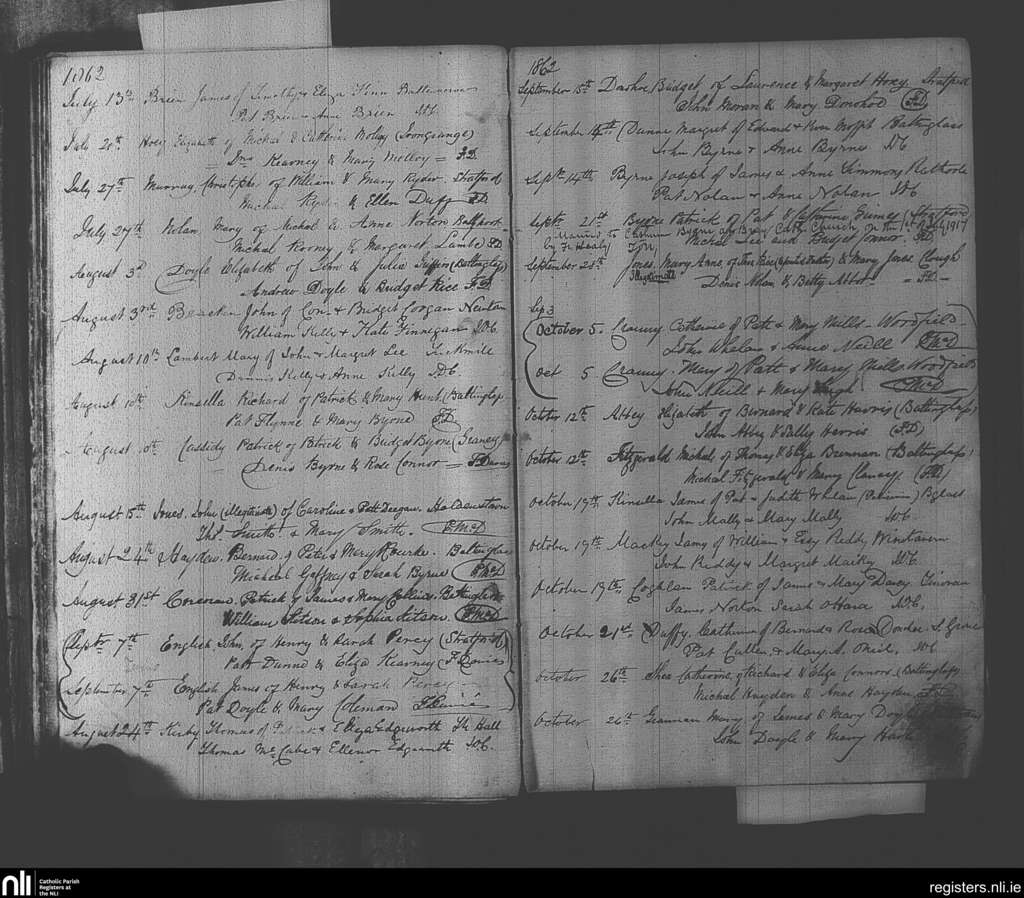 1862
July 13th Brien James of Timothy & Eliza Flinn
Pat Brien & Anne Brien W.C.
July 20th Hoey Elizabeth of Michal & Catherine Molloy (Loongrange)
Kearney & Mary Molloy = F.D.
July 27th Murray Christopher of William & Mary Ryder Stratford
Michal Ryder & Ellen Duff F.D.
July 27th Nolan Mary of Michal & Anne Norton
Michal Rooney & Margaret Lambe F.D.
August 3rd Doyle Elizabeth of John & Julia (Baltinglass)
Andrew Doyle & Bridget Rice F.D.
August 3rd John of Con. & Budget Corgan Newtown
William Kelly & Kate Finnegan W.C.
August 10th Lambert Mary of John & Margret Lee Tuckmill
Dennis Kelly & Anne Kelly W.C.
August 10th Kinsella Richard of Patrick & Mary Hunt (Baltinglass
Pat Flynne & Mary Byrne F.D.
August 10th Cassidy Patrick of Patrick & Budget Byrne (Graney)
Denis Byrne & Rose Connor = F. Davis
August 15th Jones. John (Illegitimate) of Caroline & Patt Deegan. Holdenstown
Thos. Smith. & Mary Smith. P.McD
August 24th Hayden. Bernard of Peter & Mary Rourke. Baltinglass
Michael Gaffney & Sarah Byrne P.McD
August 31st Corcoran. Patrick of James & Mary Collins. Baltinglass
William Sitson & Sophia Sitson. P.McD
Septr 7th English John. of Henry & Sarah Percy (Stratford)
Patt Dunne & Eliza Kearney (F. Davis
September 7th English James of Henry & Sarah Percy
Pat Doyle & Mary Coleman F. Davis
August 24th Kirby Thomas of Patrick & Eliza Edgeworth Hall
Thomas McCabe & Ellenor Edgeworth W.C.
1862
September 13th Budget, of Laurence & Margaret Hoey Stratford
John Moran & Mary Donohoe F.D.
September 14th (Dunne Margret of Edward & Moffit Baltinglass
John Byrne & Anne Byrne W.C.
Septr 14th Byrne Joseph of James & Anne Timmony Rathvile
Pat Nolan & Anne Nolan W.C.
Septr 21st Byrne Patrick of Pat & Catherine Grimes (Stratford
Married to Catherine Byrne at Bray Cath. Church on the 1st July 1917
by Fr Healy Michal Lee and Budget Connor. F.D.
September 28th Jones. Mary Anne, of & Mary Jones. Clough
Illegitimate Denis Nolan & Betty Abbot = F.D. -
Sep 3
October 5. Cranny Catherine of Patt & Mary Mills - Woodfield -
John Whelan & Anne Neill P.McD
Oct 5 Cranny - Mary of Patt & Mary Mills. Woodfield
John Neill & Mary P.McD
October 12th Abbey Elizabeth of Bernard & Kate Harris (Baltinglass)
John Abby & Sally Harris (F.D)
October 12th Fitzgerald Michal of Thomas & Eliza Brennan (Baltinglass)
Michael Fitzgerald & Mary Clancy. (F.D)
October 19th Kinsella James of Pat & Judith Whelan Bglass
John Mally & Mary Mally W.C.
October 19th Mackey Jamy of William & Essy Reddy
John Reddy & Margret Mackey W.C.
October 19th Coghlan Patrick of James & Mary Darcy Tinoran
James Norton Sarah O'Hara W.C.
October 21st (Duffy. Catherine of Bernard & Rose
Pat Cullen & Mary A. Oneil. W.C.
October 26th Shea Catherine of Richard & Eliza Connors (Baltinglass)
Michal Hayden & Anne Hayden
October 26th Mary of James & Mary
John Doyle & Mary
nli Catholic Parish
Registers at
the NLI
registers.nli.ie